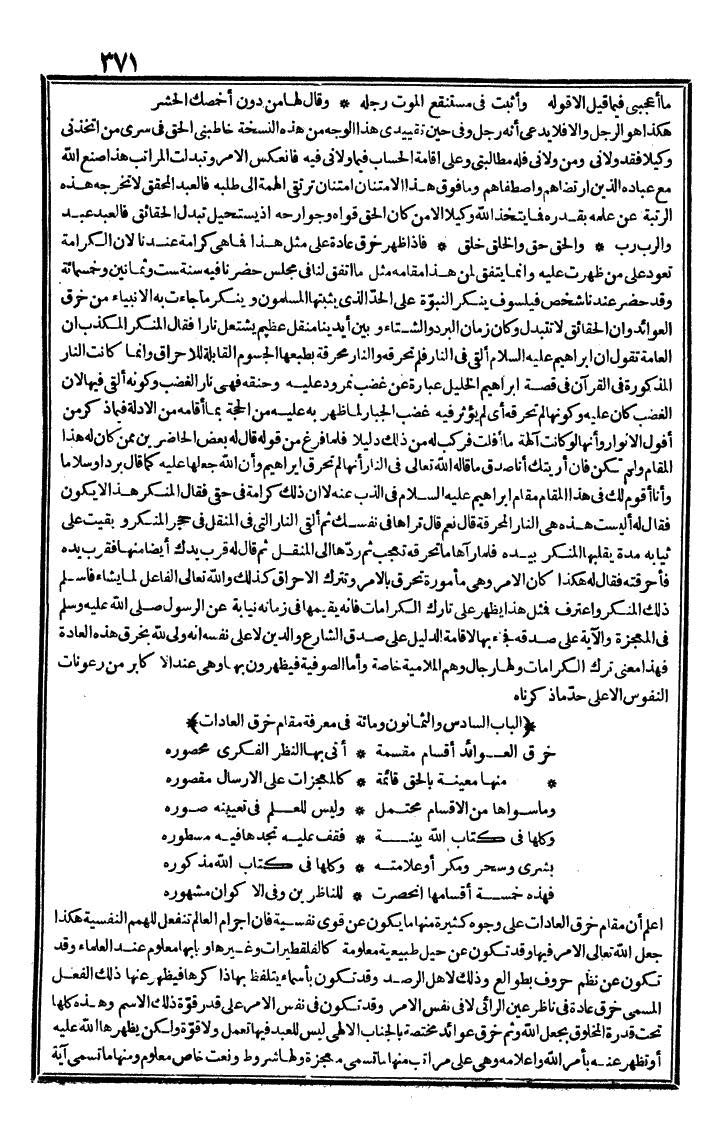 ٣٧١
ما أعجبني فيما قيل الا قوله وأثبت فى مستنقع الموت رجله * وقال لها من دون أخمصك الحشر
هكذا هو الرجل والا فلا يدعى أنه رجل وفى حين تقييدى هذا الوجه من هذه النسخة خاطبنى الحق فى سرى من اتخذنى
وكيلا فقد ولانى ومن ولانى فله مطالبتى وعلىّ اقامة الحساب فيما ولانى فيه فانعكس الامر وتبدلت المراتب هذا صنع الله
مع عباده الذين ارتضاهم واصطفاهم وما فوق هذا الامتنان امتنان ترتقى الهمة الى طلبه فالعبد المحقق لا تخرجه هذه
الرتبة عن علمه بقدره فما يتخذ الله وكيلا الا من كان الحق قواه وجوارحه اذ يستحيل تبدل الحقائق فالعبد عبد
والرب رب * والحق حق والخلق خلق * فاذا ظهر خرق عادة على مثل هذا فما هى كرامة عندنا لان الكرامة
تعود على من ظهرت عليه وانما يتفق لمن هذا مقامه مثل ما اتفق لنا فى مجلس حضرنا فيه سنة ست وثمانين وخمسمائة
وقد حضر عندنا شخص فيلسوف ينكر النبوّة على الحدّ الذى يثبتها المسلمون وينكر ما جاءت به الانبياء من خرق
العوائد وان الحقائق لا تتبدل وكان زمان البرد والشتاء وبين أيدينا منقل عظيم يشتعل نارا فقال المنكر المكذب ان
العامة تقول ان ابراهيم عليه السلام ألقى فى النار فلم تحرقه والنار محرقة بطبعها الجسوم القابلة للاحراق وانما كانت النار
المذكورة فى القرآن فى قصة ابراهيم الخليل عبارة عن غضب نمرود عليه وحنقه فهى نار الغضب وكونه ألقى فيها لان
الغضب كان عليه وكونها لم تحرقه أى لم يؤثر فيه غضب الجبار لما ظهر به عليه من الحجة بما أقامه من الادلة فيما ذكر من
أفول الانوار وأنها لو كانت آلهة ما أفلت فركب له من ذلك دليلا فلما فرغ من قوله قال له بعض الحاضرين ممن كان له هذا
المقام ولم تكن فان أريتك أنا صدق ما قاله الله تعالى فى النار أنها لم تحرق ابراهيم وأن الله جعلها عليه كما قال بردا وسلاما
وأنا أقوم لك فى هذا المقام مقام ابراهيم عليه السلام فى الذب عنه لا ان ذلك كرامة فى حقى فقال المنكر هذا لا يكون
فقال له أليست هذه هى النار المحرقة قال نعم قال تراها فى نفسك ثم ألقى النار التى فى المنقل فى حجر المنكر وبقيت على
ثيابه مدة يقلبها المنكر بيده فلما رآها ما تحرقه تعجب ثم ردّها الى المنقل ثم قال له قرب يدك أيضا منها فقرب يده
فأحرقته فقال له هكذا كان الامر وهى مأمورة تحرق بالامر وتترك الاحراق كذلك والله تعالى الفاعل لما يشاء فاسلم
ذلك المنكر واعترف فمثل هذا يظهر على تارك الكرامات فانه يقيمها فى زمانه نيابة عن الرسول صلى الله عليه وسلم
فى المعجزة والآية على صدقه فجاء بها لاقامة الدليل على صدق الشارع والدين لا على نفسه انه ولى لله بخرق هذه العادة
فهذا معنى ترك الكرامات ولها رجال وهم الملامية خاصة وأما الصوفية فيظهرون بها وهى عند الاكابر من رعونات
النفوس الا على حدّ ما ذكرناه
﴿الباب السادس والثمانون ومائة فى معرفة مقام خرق العادات﴾
خرق العوائد أقسام مقسمة * أتى بها النظر الفكرى محصوره
* منها معينة بالحق قائمة * كالمعجزات على الارسال مقصوره
وما سواها من الاقسام محتمل * وليس للعلم فى تعيينه صوره
وكلها فى كتاب الله بينة * فقف عليه تجدها فيه مسطوره
بشرى وسحر ومكر أو علامته * وكلها فى كتاب الله مذكوره
فهذه خمسة أقسامها انحصرت * للناظرين وفى الاكوان مشهوره
اعلم أن مقام خرق العادات على وجوه كثيرة منها ما يكون عن قوى نفسية فان اجرام العالم تنفعل للهمم النفسية هكذا
جعل الله تعالى الامر فيها وقد تكون عن حيل طبيعية معلومة كالفلقطيرات وغيرها وبابها معلوم عند العلماء وقد
تكون عن نظم حروف بطوالع وذلك لاهل الرصد وقد تكون بأسماء يتلفظ بها ذاكرها فيظهر عنها ذلك الفعل
المسمى خرق عادة فى ناظر عين الرائى لا فى نفس الامر وقد تكون فى نفس الامر على قدر قوّة ذلك الاسم وهذه كلها
تحت قدرة المخلوق بجعل الله وثم خرق عوائد مختصة بالجناب الالهى ليس للعبد فيها تعمل ولا قوّة ولكن يظهرها الله عليه
أو تظهر عنه بأمر الله واعلامه وهى على مراتب منها ما تسمى معجزة ولها شروط ونعت خاص معلوم ومنها ما تسمى آية